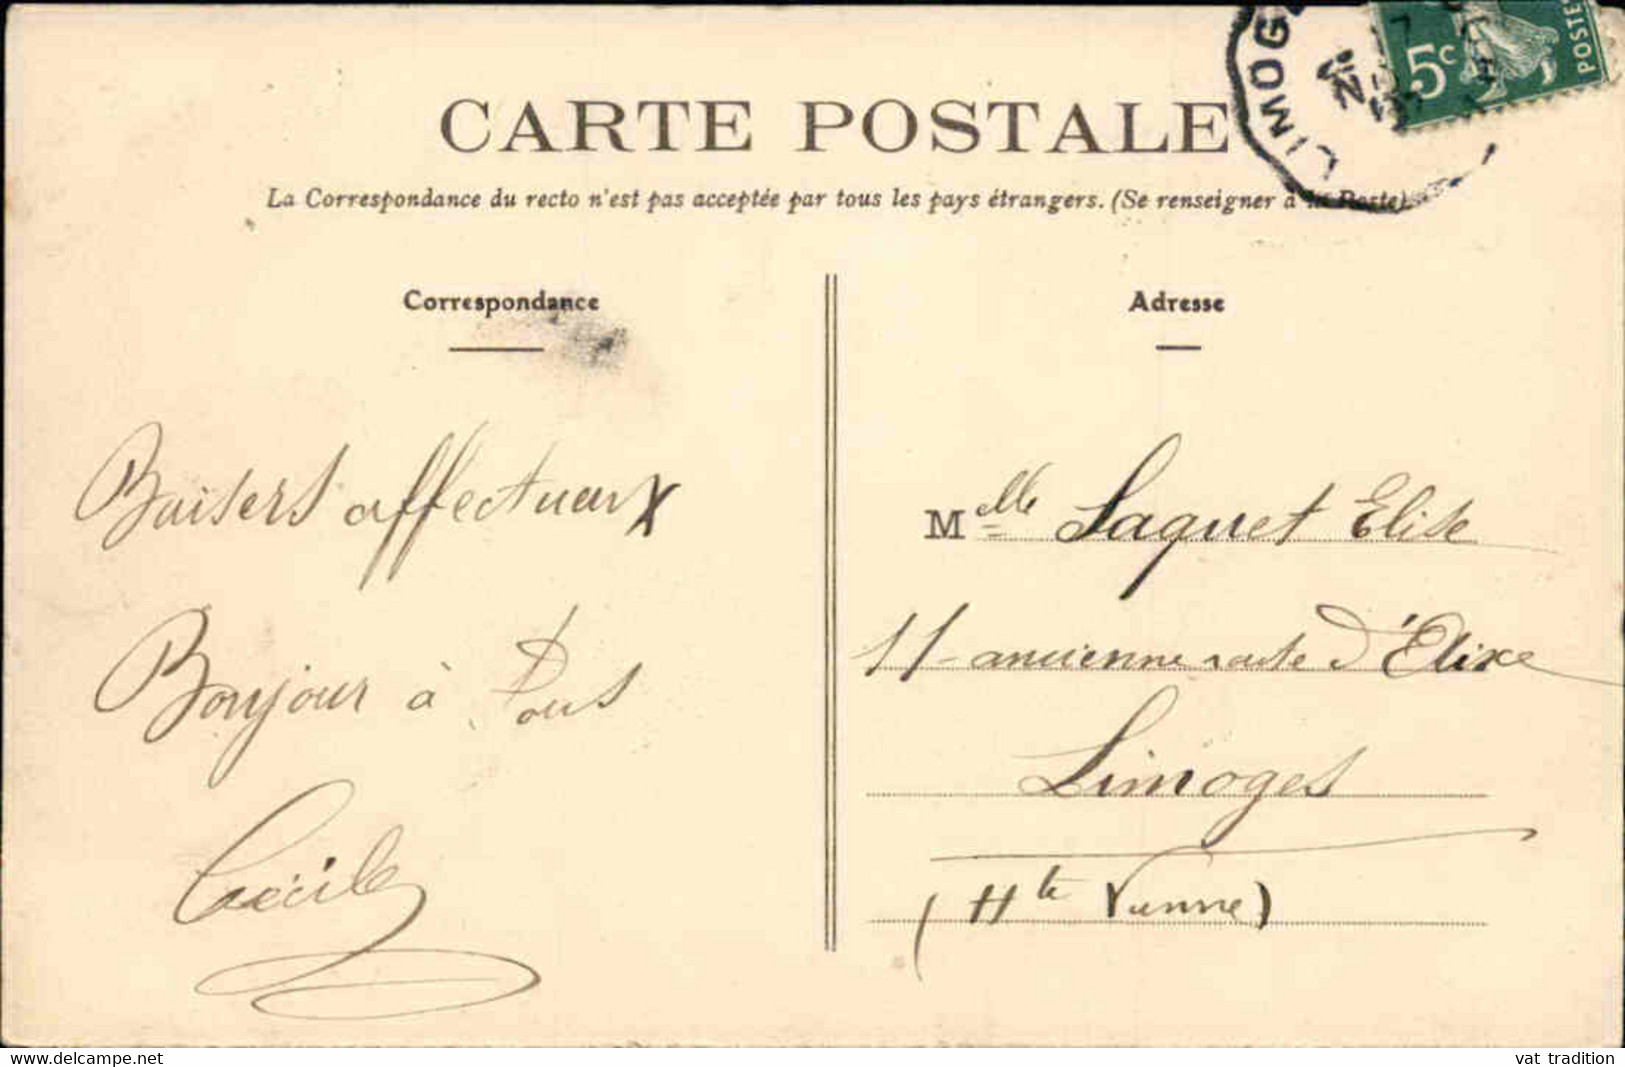 CARTE POSTALE
La Correspondance du recto n'est pas acceptée par tous les pays étrangers. (Se renseigner à la Poste)
LIMOG
5c
POSTES
Correspondance
Baisers affectueux
Bonjour à Tous
Cécile
Adresse
Melle Laquet Elise
11 ancienne route d'Elixe
Limoges
(Hte Vienne)
www.delcampe.net
vat tradition